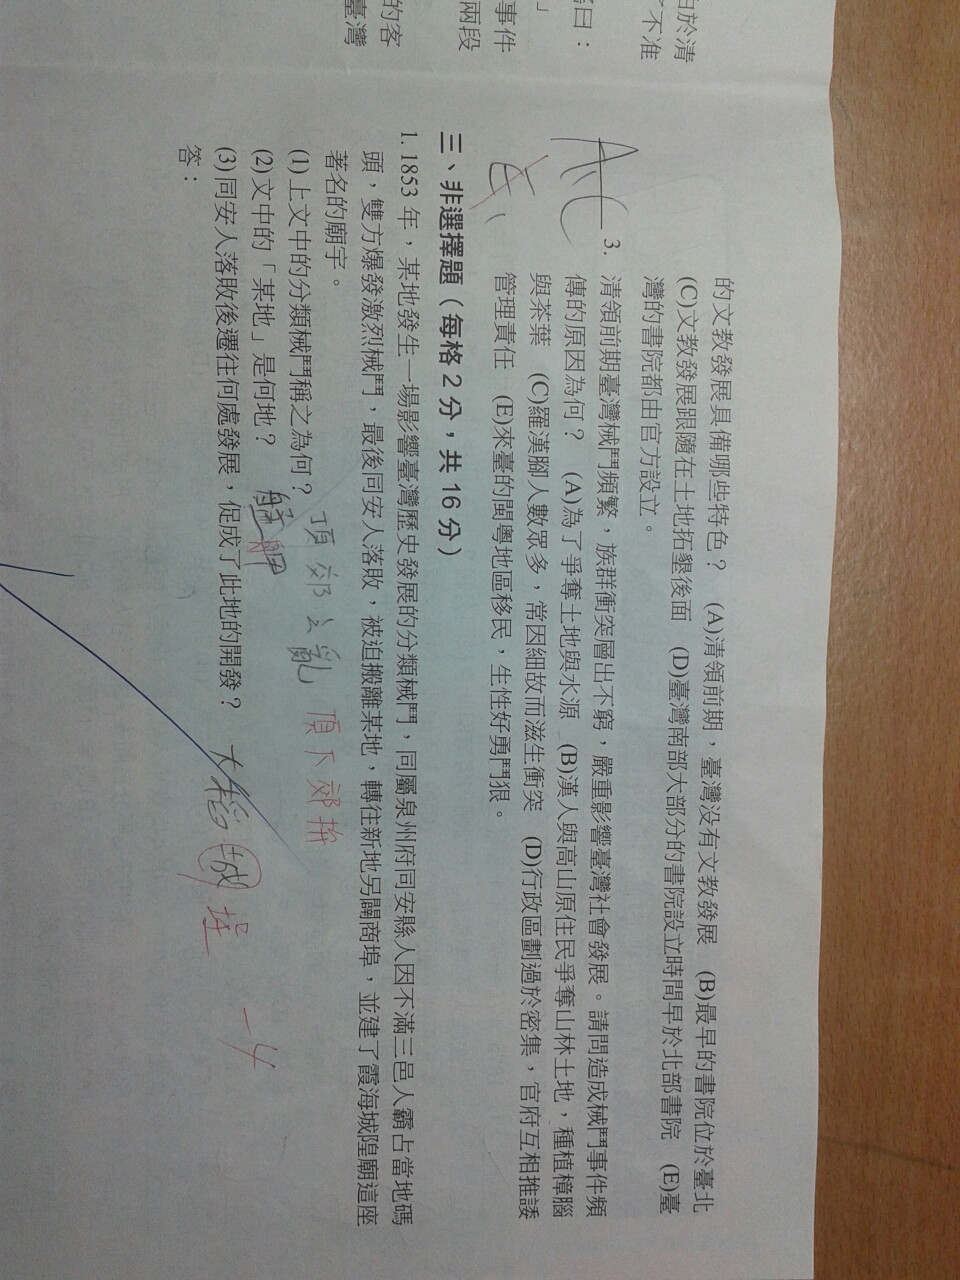 由於清
不准
曰：
」
事件
兩段
的客
臺灣
的文教發展具備哪些特色？ (A)清領前期，臺灣沒有文教發展 (B)最早的書院位於臺北
(C)文教發展跟隨在土地拓墾後面 (D)臺灣南部大部分的書院設立時間早於北部書院 (E)臺
灣的書院都由官方設立。
AC 3. 清領前期臺灣械鬥頻繁，族群衝突層出不窮，嚴重影響臺灣社會發展。請問造成械鬥事件頻
傳的原因為何？ (A)為了爭奪土地與水源 (B)漢人與高山原住民爭奪山林土地，種植樟腦
與茶葉 (C)羅漢腳人數眾多，常因細故而滋生衝突 (D)行政區劃過於密集，官府互相推諉
管理責任 (E)來臺的閩粵地區移民，生性好勇鬥狠。
三、非選擇題（每格2分，共16分）
1. 1853 年，某地發生一場影響臺灣歷史發展的分類械鬥，同屬泉州府同安縣人因不滿三邑人霸占當地碼
頭，雙方爆發激烈械鬥，最後同安人落敗，被迫搬離某地，轉往新地另闢商埠，並建了霞海城隍廟這座
著名的廟宇。
(1)上文中的分類械鬥稱之為何？ 頂郊之亂 頂下郊拚
(2)文中的「某地」是何地？ 艋舺
(3)同安人落敗後遷往何處發展，促成了此地的開發？ 大稻城 埕 -4
答：